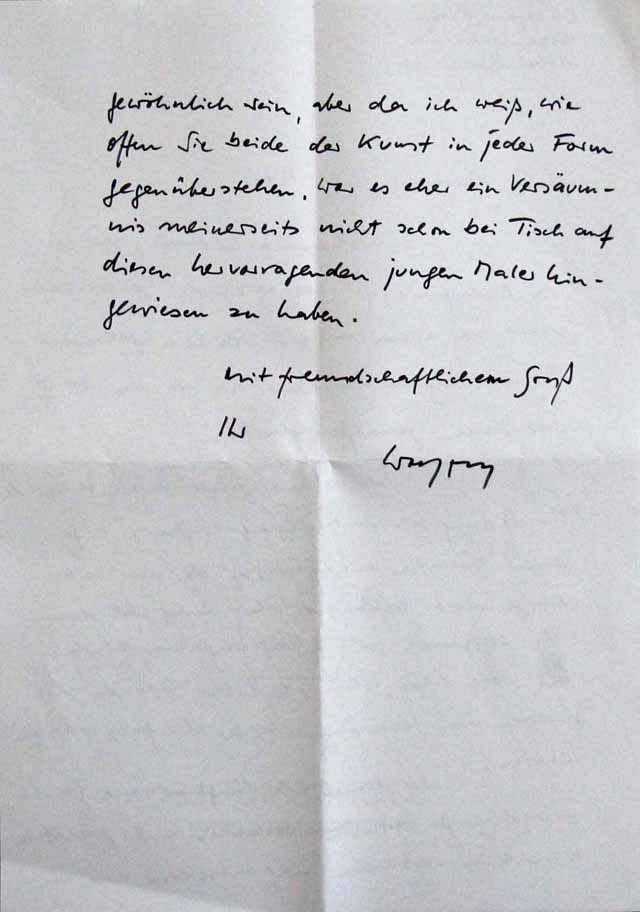 gewöhnlich sein, aber da ich weiß, wie
offen Sie beide der Kunst in jeder Form
gegenüberstehen, war es eher ein Versäum-
nis meinerseits nicht schon bei Tisch auf
diesen hervorragenden jungen Maler hin-
gewiesen zu haben.
Mit freundschaftlichem Gruß
Ihr